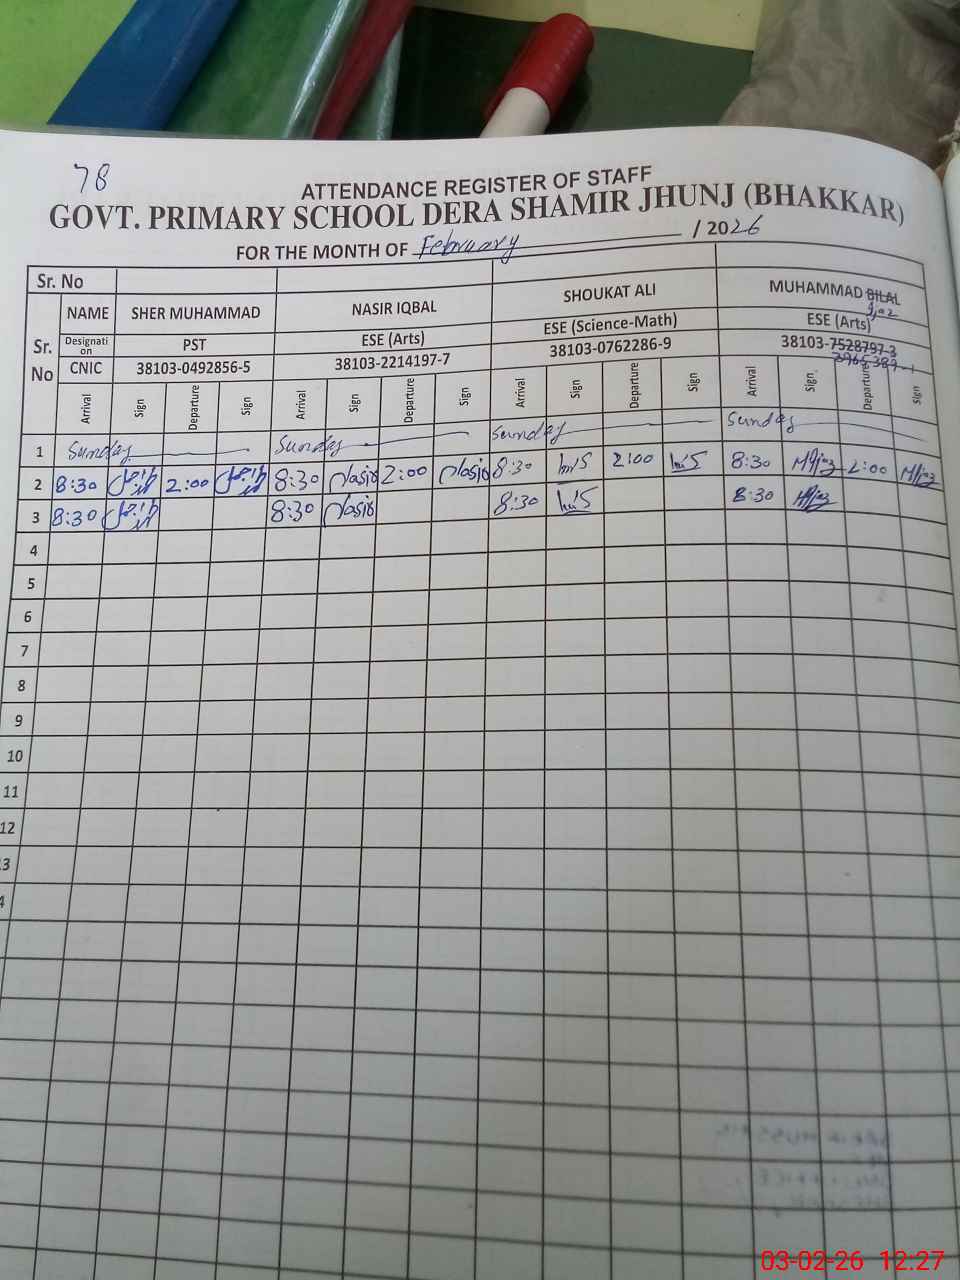 78
ATTENDANCE REGISTER OF STAFF
GOVT. PRIMARY SCHOOL DERA SHAMIR JHUNJ (BHAKKAR)
FOR THE MONTH OF February / 2026
Sr. No
Sr. No NAME SHER MUHAMMAD NASIR IQBAL SHOUKAT ALI MUHAMMAD BILAL Ijaz
Designation PST ESE (Arts) ESE (Science-Math) ESE (Arts)
CNIC 38103-0492856-5 38103-2214197-7 38103-0762286-9 38103-7528797-3
Arrival Sign Departure Sign Arrival Sign Departure Sign Arrival Sign Departure Sign Arrival Sign Departure Sign
1 Sunday Sunday Sunday Sunday
2 8:30 2:00 8:30 Nasir 2:00 Nasir 8:30 2:00 8:30 MIjaz 2:00 MIjaz
3 8:30 8:30 Nasir 8:30 8:30 MIjaz
4
5
6
7
8
9
10
11
12
3
4
03-02-26 12:27